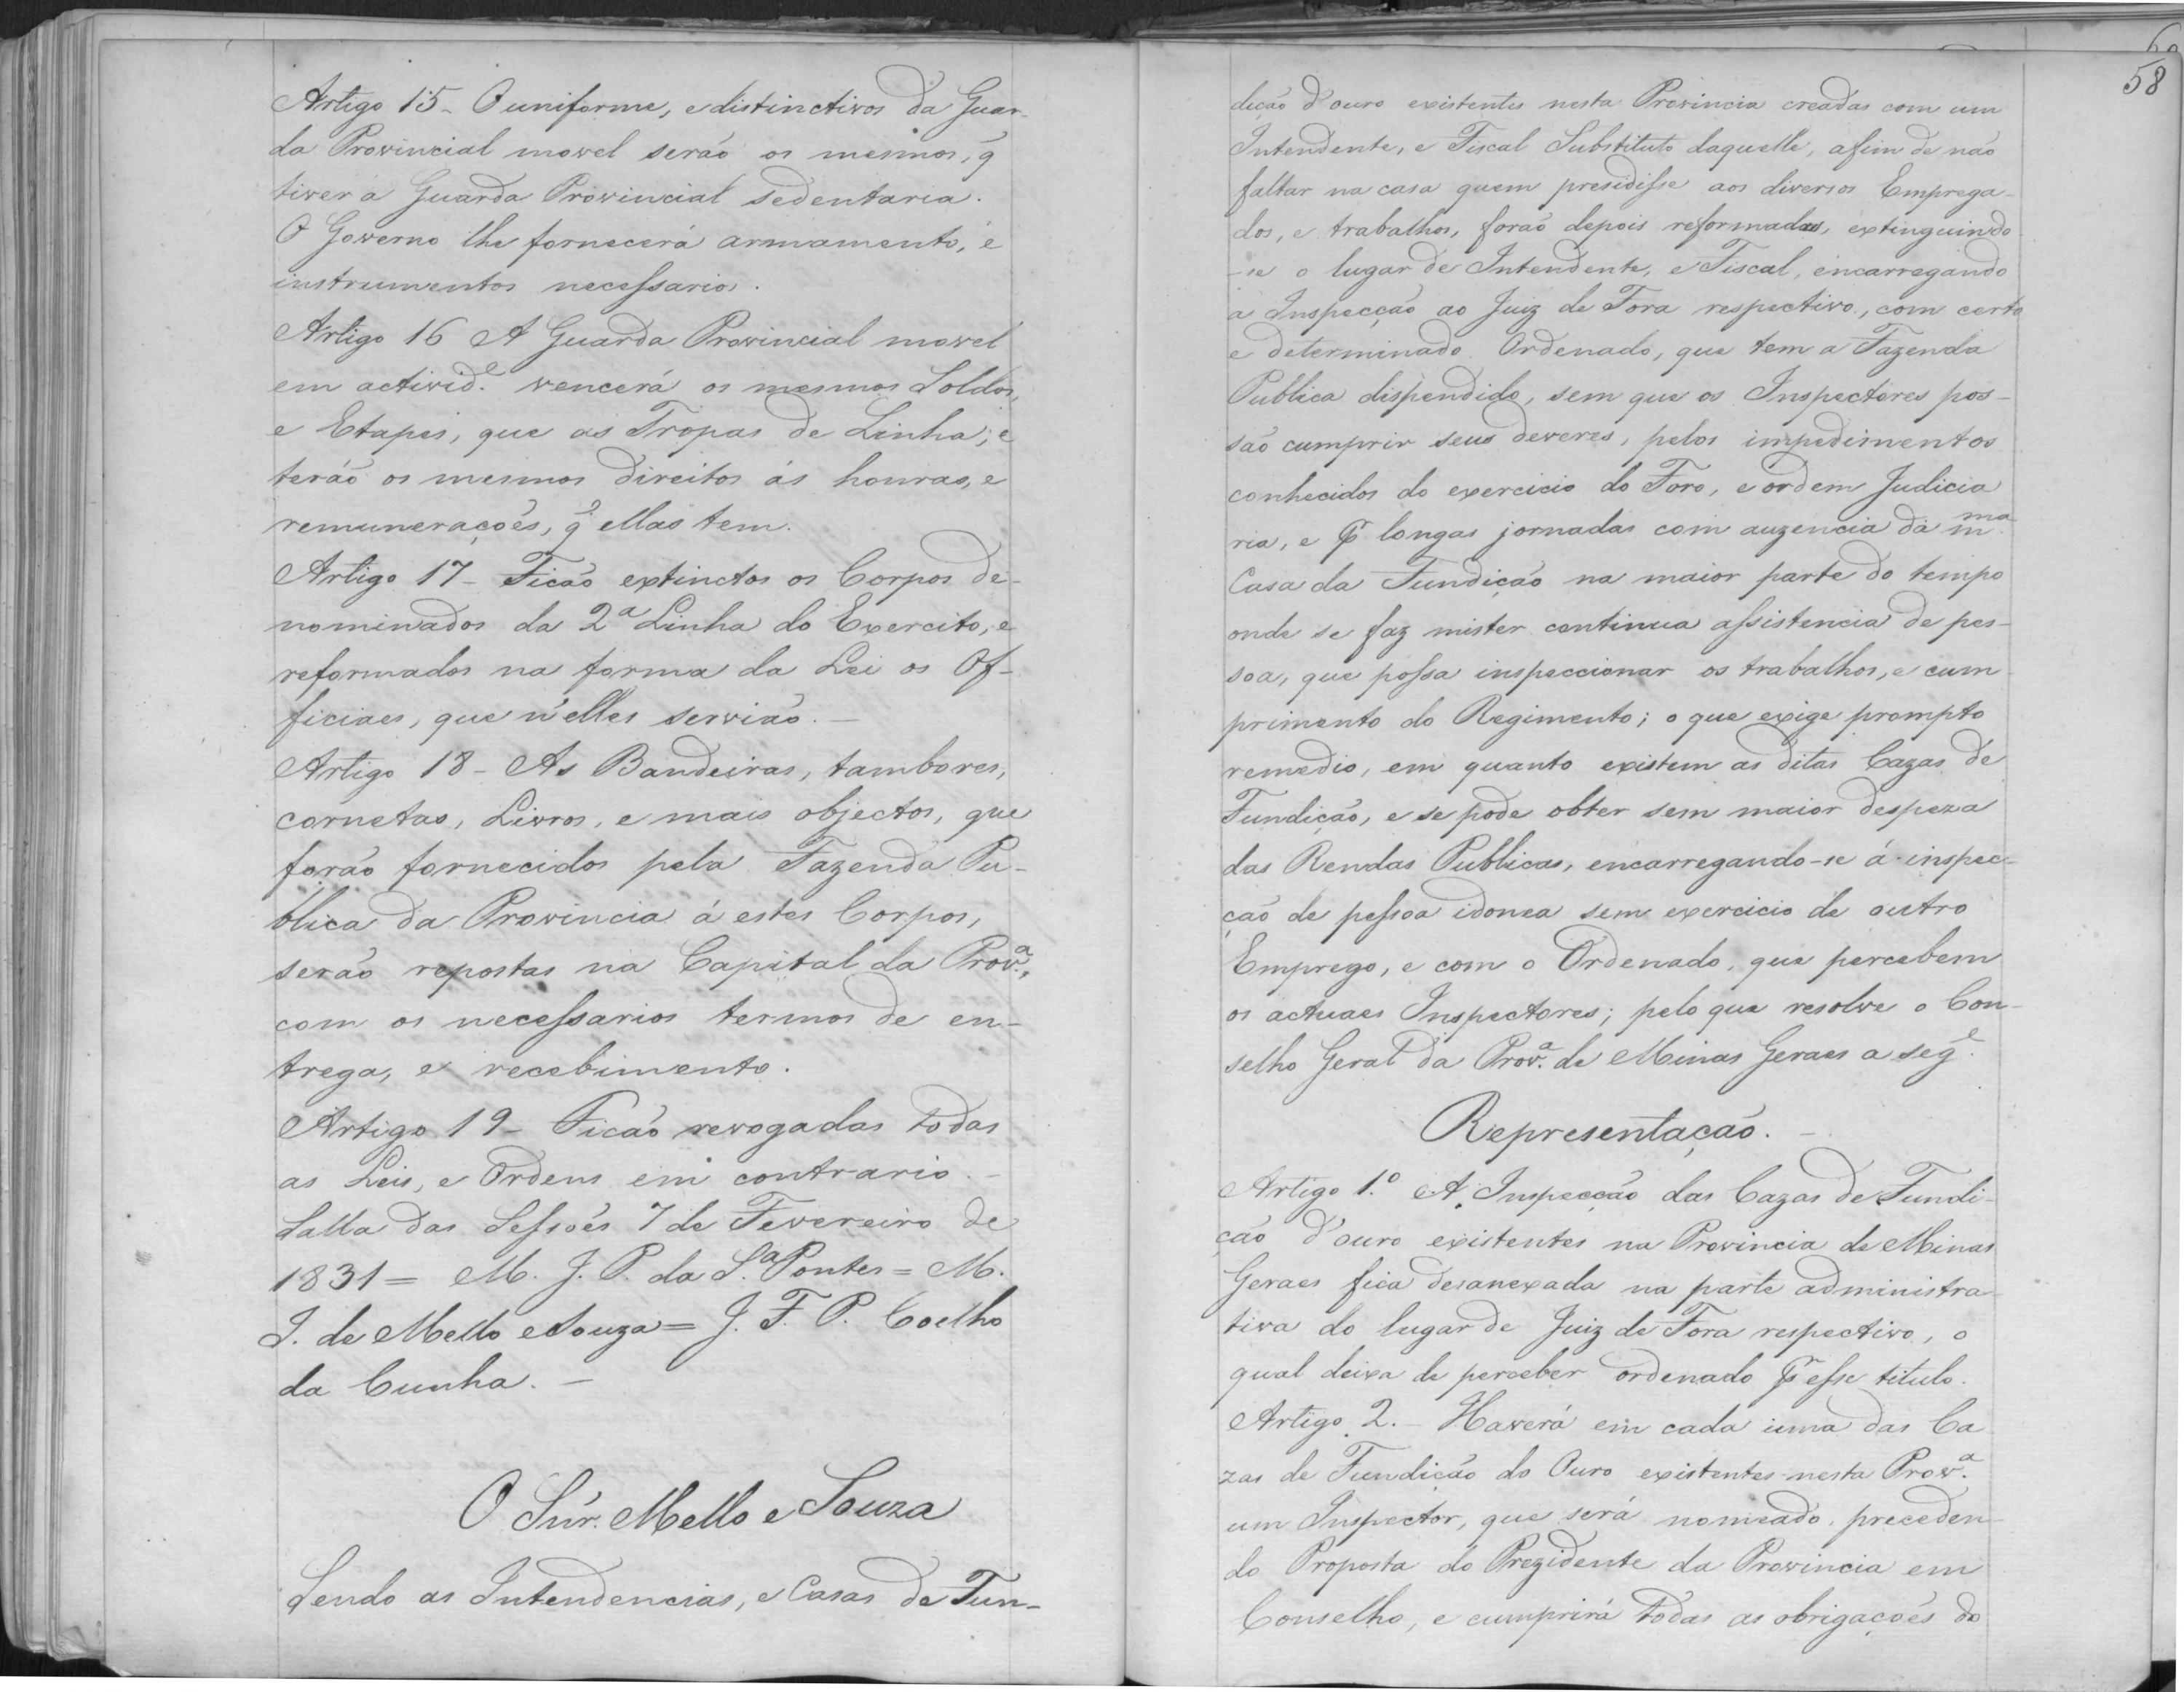 Artigo 15 - O uniforme, e distinctivos da Guar-
da Provincial movel serão os mesmos, q̃
tiver a Guarda Provincial sedentaria.
O Governo lhe fornecerá armamento, e
instrumentos necessarios.
Artigo 16 A Guarda Provincial movel
em activid.e vencerá os mesmos Soldos,
e Etapes, que as Tropas de Linha; e
terão os mesmos direitos ás honras, e
remunerações, q̃ ellas tem.
Artigo 17 - Ficão extinctos os Corpos de-
nominados da 2ª Linha do Exercito, e
reformados na forma da Lei os Of-
ficiaes, que n'elles servião. -
Artigo 18 - As Bandeiras, tambores,
cornetas, Livros, e mais objectos, que
forão fornecidos pela Fazenda Pu-
blica da Provincia á estes Corpos,
serão repostas na Capital da Prov.ª,
com os necessarios termos de en-
trega, e recebimento.
Artigo 19 - Ficão revogadas todas
as Leis, e Ordens em contrario. -
Salla das Sessões 7 de Fevereiro de
1831 = M. J. P. da S.ª Pontes = M.
J. de Mello e Souza = J. F. P. Coelho
da Cunha. -
O Sñr. Mello e Souza
Sendo as Intendencias, e Casas de Fun-
58
dição d'ouro existentes nesta Provincia creadas com um
Intendente, e Fiscal Substituto daquelle, afim de não
faltar na casa quem presidisse aos diversos Emprega-
dos, e trabalhos, forão depois reformadas, extinguindo
-se o lugar de Intendente, e Fiscal, encarregando
a Inspecção ao Juiz de Fora respectivo, com certo
e determinado Ordenado, que tem a Fazenda
Publica dispendido, sem que os Inspectores pos-
são cumprir seus deveres, pelos impedimentos
conhecidos do exercicio do Foro, e ordem Judicia
ria, e pr longas jornadas com auzencia da m.ma
Casa da Fundição na maior parte do tempo
onde se faz mister continua assistencia de pes-
soa, que possa inspeccionar os trabalhos, e cum
primento do Regimento; o que exige prompto
remedio, em quanto existem as ditas Cazas de
Fundição, e se pode obter sem maior despeza
das Rendas Publicas, encarregando-se á inspec-
ção de pessoa idonea sem exercicio de outro
Emprego, e com o Ordenado, que percebem
os actuaes Inspectores; pelo que resolve o Con-
selho Geral da Prov.ª de Minas Geraes a seg.e
Representação. -
Artigo 1.º A Inspecção das Cazas de Fundi-
ção d'ouro existentes na Provincia de Minas
Geraes fica desanexada na parte administra-
tiva do lugar de Juiz de Fora respectivo, o
qual deixa de perceber ordenado pr esse titulo.
Artigo 2. - Haverá em cada uma das Ca
zas de Fundição do Ouro existentes nesta Prov.ª
um Inspector, que será nomeado, preceden-
do Proposta do Prezidente da Provincia em
Conselho, e cumprirá todas as obrigações do